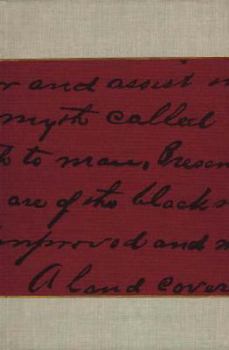 and assist
myth called
to man, Presen
are of the black
improved and
A land cover